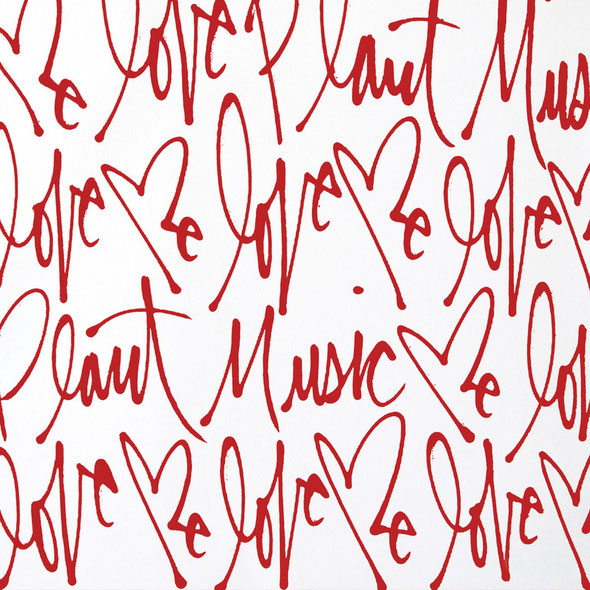 Me love Plant Mus
love Me love Me love
Plant Music Me lo
love Me love Me love